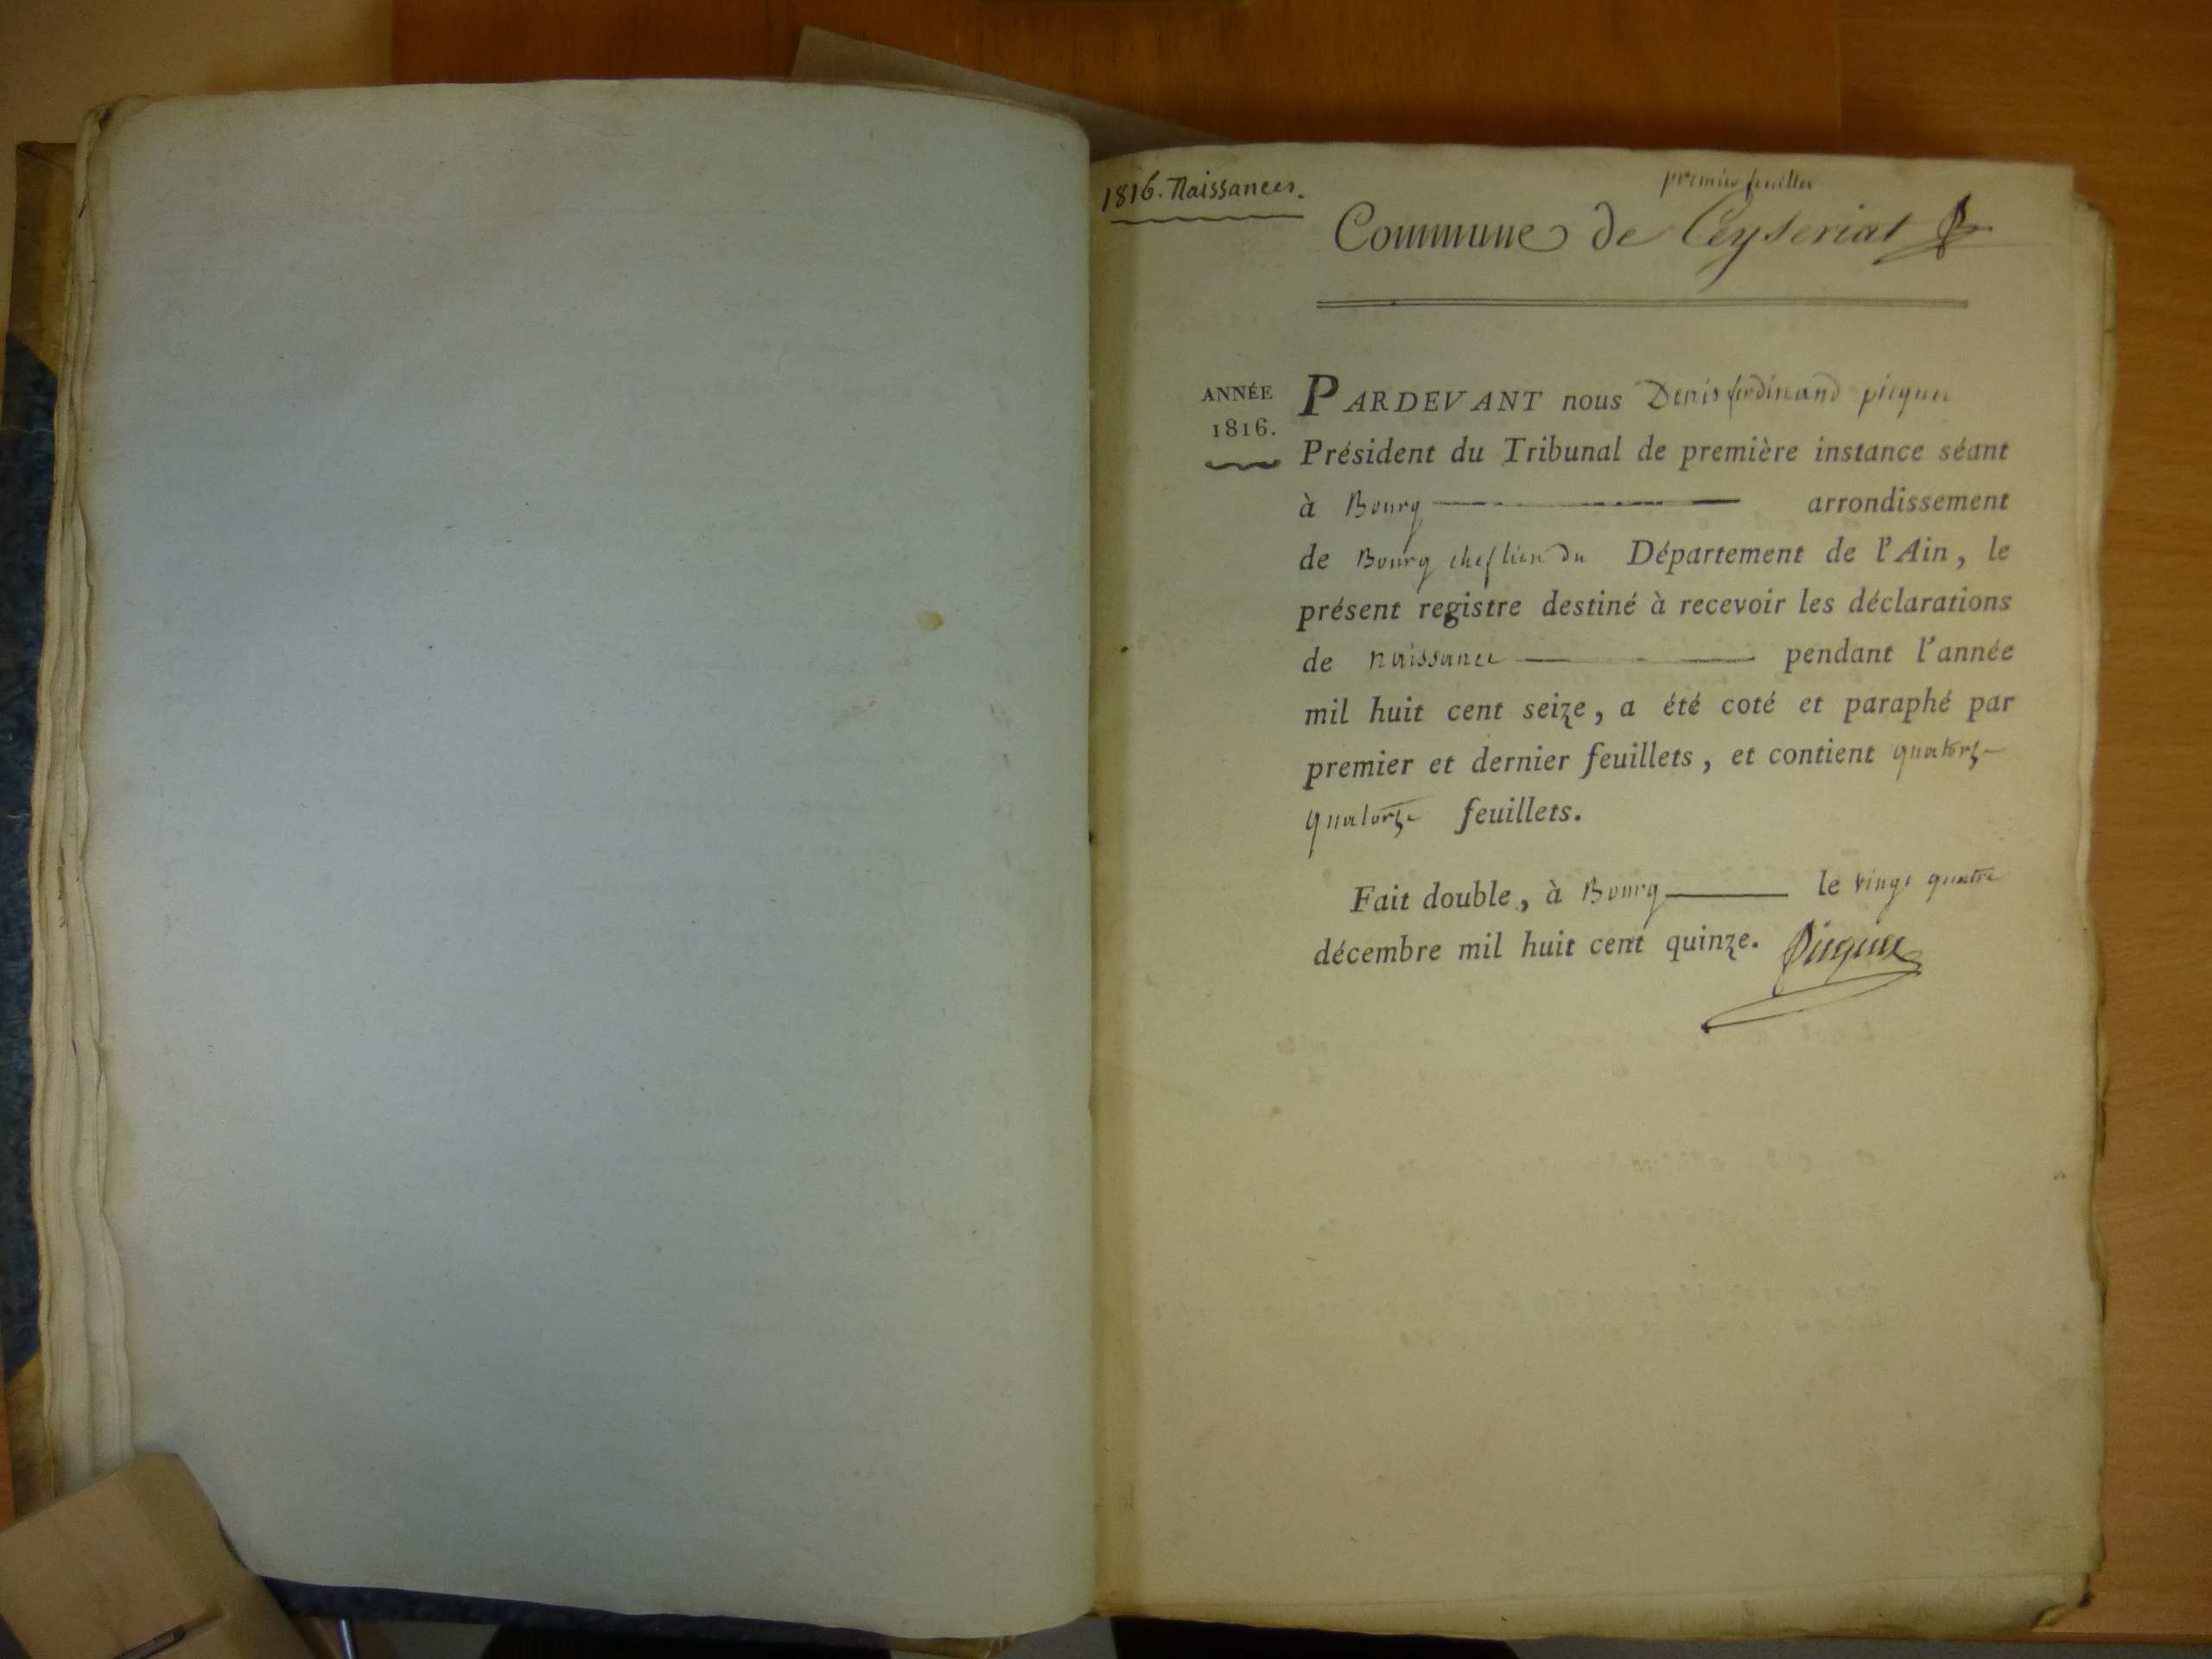 1816. Naissances.
premier feuillet
Commune de Ceyseriat
ANNÉE
1816.
PARDEVANT nous Denis ferdinand picquet
Président du Tribunal de première instance séant
à Bourg arrondissement
de Bourg chef lieu du Département de l'Ain, le
présent registre destiné à recevoir les déclarations
de naissance pendant l'année
mil huit cent seize, a été coté et paraphé par
premier et dernier feuillets, et contient quatorze
quatorze feuillets.
Fait double, à Bourg le vingt quatre
décembre mil huit cent quinze. Picquet